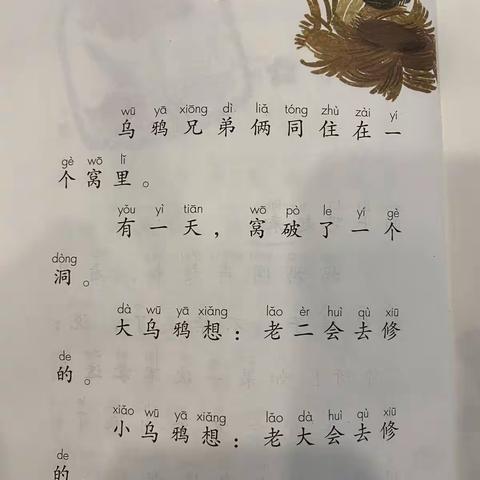 wū yā xiōng dì liǎ tóng zhù zài yí
乌鸦兄弟俩同住在一
gè wō lǐ
个窝里。
yǒu yì tiān wō pò le yí gè
有一天，窝破了一个
dòng
洞。
dà wū yā xiǎng lǎo èr huì qù xiū
大乌鸦想：老二会去修
de
的。
xiǎo wū yā xiǎng lǎo dà huì qù xiū
小乌鸦想：老大会去修
de
的